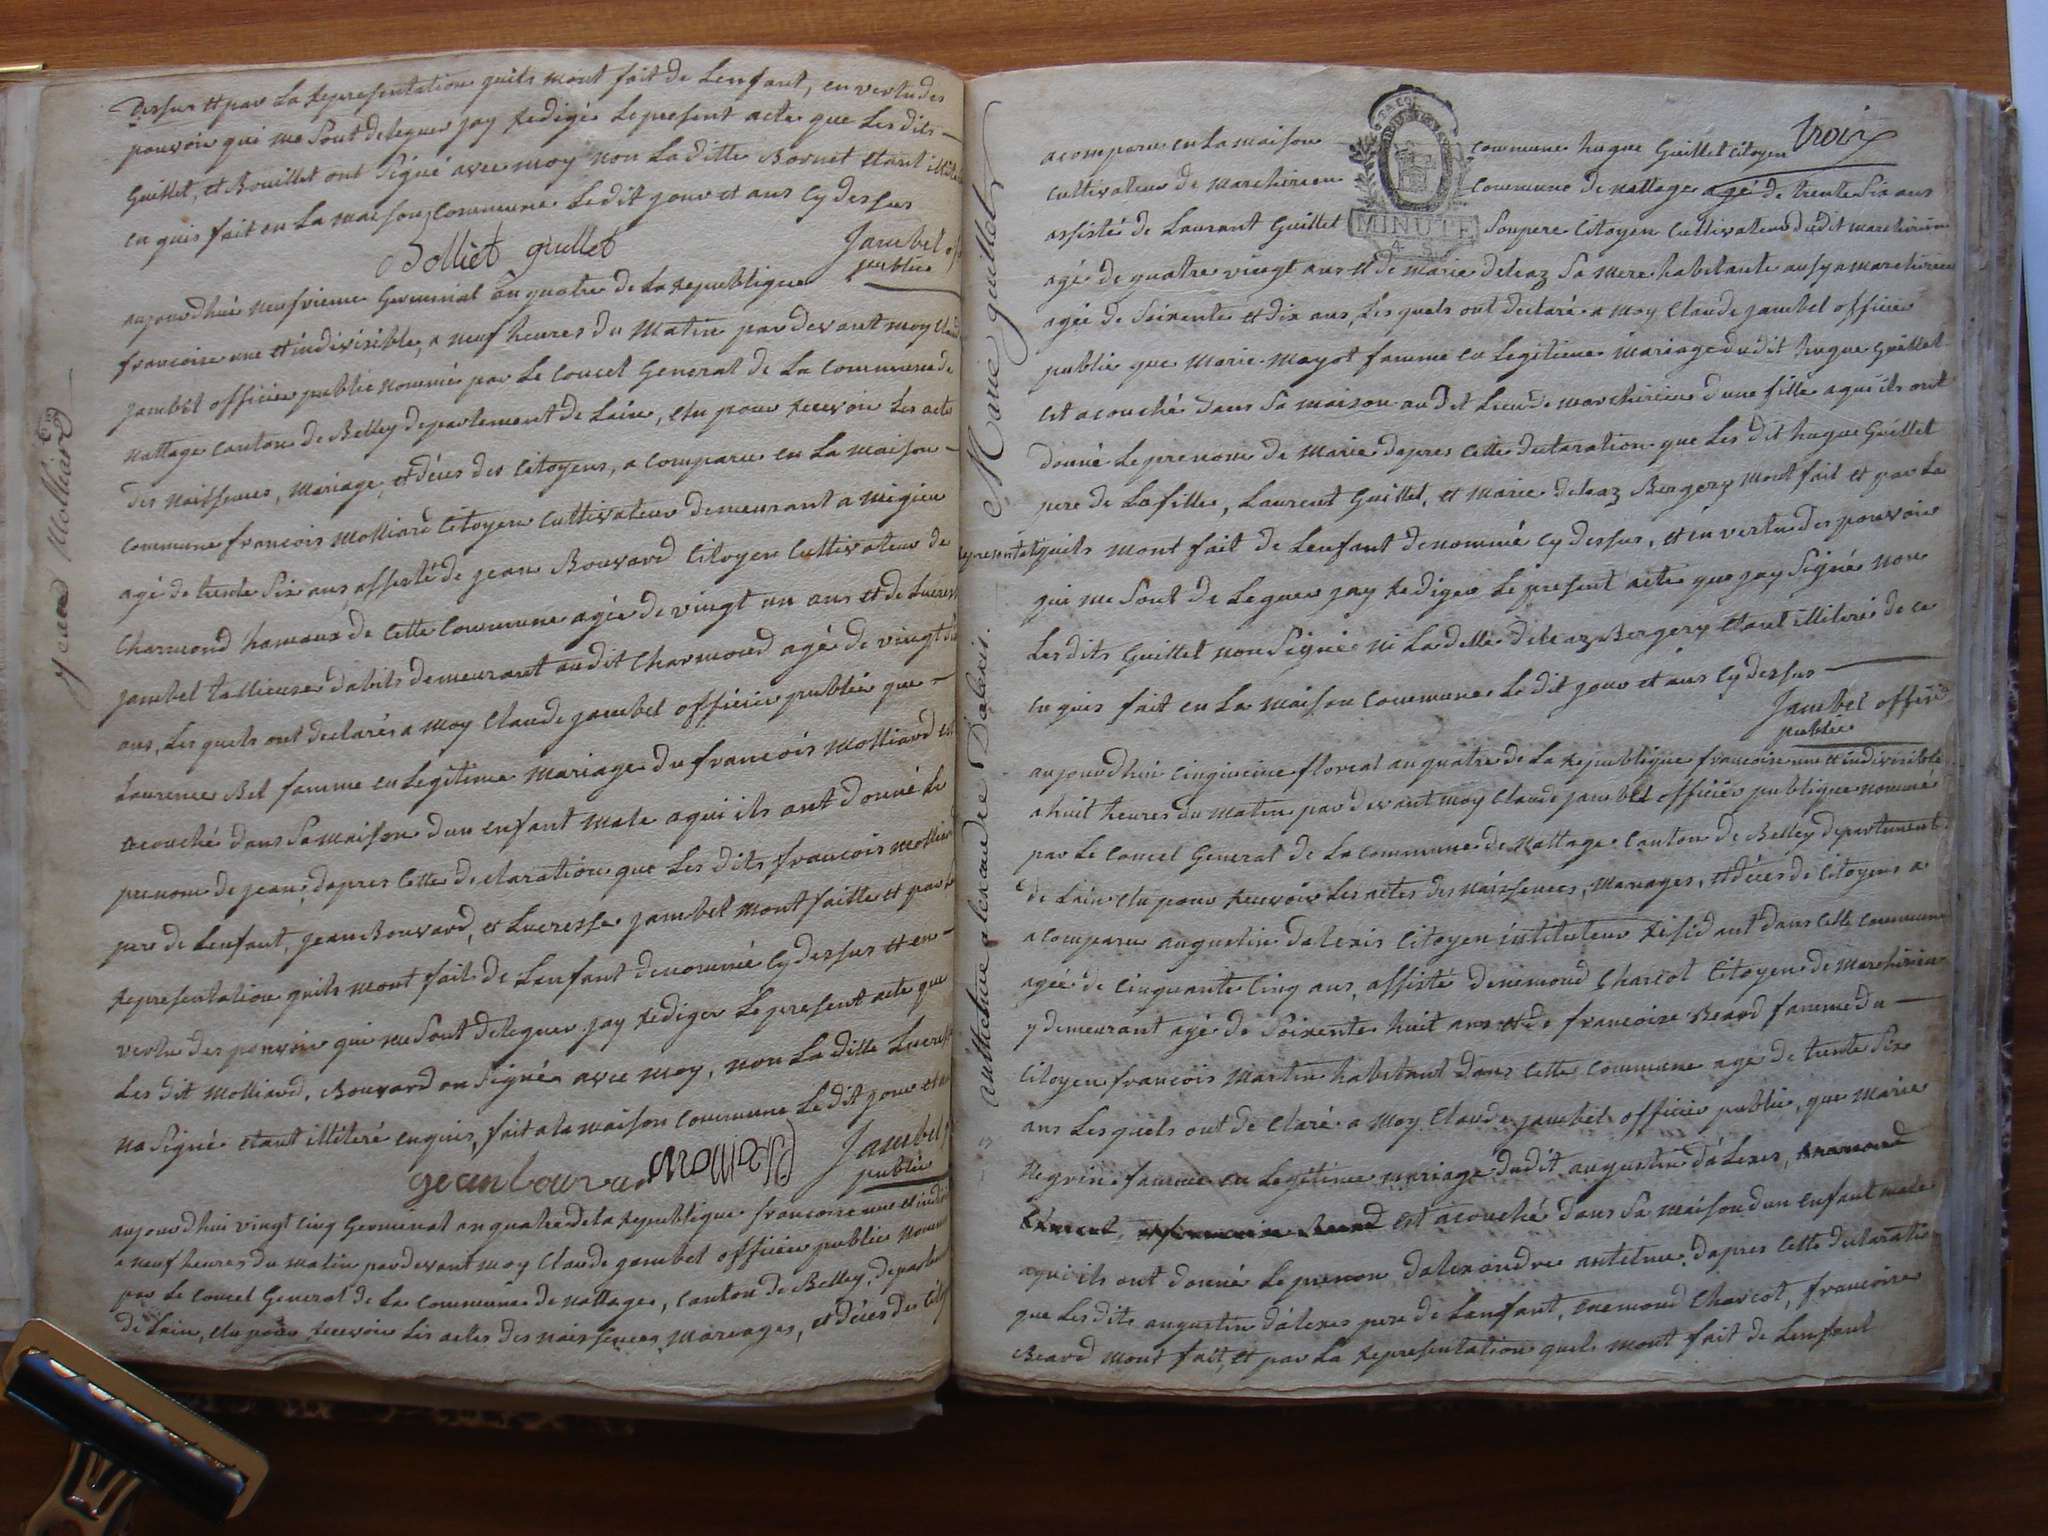 Dessus et par la Representation quils mont fait de Lenfant, en vertu des
pouvoir qui me Sont deleguer jay Redigé Le present acte que Les dits
Guillet, et Bouillet ont Signé avec moy non La ditte Bornet etant
en quis fait en La maison Commune Le dit jour et ans Cy dessus
Bolliet guillet Jambel
public
aujourdhui neufvieme Germinal an quatre de La Republique
francoise une et indivisible, a neuf heures du Matin par devant moy
jambel officier public nommé par Le Concel General de La Commune de
nattage canton de Belley departement de Lain, elu pour Recevoir Les acte
des naissences, Mariage, et déces des Citoyens, a comparu en La maison
commune francois Molliard Citoyen Cultivateur demeurant a Migieu
agé de trente Six ans, assisté de jean Bouvard Citoyen Cultivateur de
Charmond hamaux de Cette Commune agée de vingt un ans et de Lucresse
jambel tallieuse dabits demeurant audit Charmond agé de vingt
ans, Les quels ont declarés a moy Claude jambel officier public que
Laurence Bel famme en Legitime Mariage du francois Molliard est
acouché dans Sa maison dun enfant Male a qui ils ont donné Le
prenom de jean, dapres Cette declaration que Les dits francois
pere de Lenfant, jean Bouvard, et Lucresse jambel mont faitte et par La
Representation quils mont fait de Lenfant denommé Cy dessus et en
vertu des pouvoir qui me Sont deleguer jay Rediger Le present acte que
Les dit Molliard, Bouvard on Signér avec moy, non La ditte Lucresse
na Signé etant illiteré enquis, fait a la maison commune Le dit jour et
Jean bouvar Molliard Jambel
public
aujourdhui vingt Cinq Germinal an quatre de la Republique francoise une et
a neuf heures du matin par devant moy Claude jambel officier public nommé
par Le Concel General de La Commune de nattages, Canton de Belley, departement
de Lain, elu pour Recevoir Les actes des naissences, Mariages, et déces des
Jean Molliard
troix
acomparu en La maison commune hugue Guillet Citoyen
cultivateur de marchirieu Commune de nattage agé de trente Six ans
assisté de Laurant Guillet Son pere Citoyen Cultivateur dudit marchirieu
MINUTE
agé de quatre vingt ans et de marie deleaz Sa Mere habitante ausy a marchirieu
agée de Soixente et dix ans, Les quels ont declaré a Moy Claude jambel officier
public que Marie Mayot famme en Legitime Mariage dudit hugue Guillet
est acouché dans Sa maison au dit Lieu de marchirieu dune fille a qui ils ont
donné Le prenom de Marie dapres Cette declaration que Les dit hugue Guillet
pere de La fille, Laurent Guillet, et Marie deleaz Bergery mont fait et par La
representat quils mont fait de Lenfant denommé Cy dessus, et en vertu des pouvoir
qui me Sont de Leguer jay Rediger Le present acte que jay Signé non
Les dits Guillet non Signé ni La ditte deleaz Bergery etant illiteré de ce
enquis fait en La maison Commune Le dit jour et ans Cy dessus
Jambel officié
public
Marie guillet
aujourdhui Cinquieme floreal an quatre de La Republique francoise une et indivisible
a huit heures du Matin par devant moy Claude jambel officier publique nommé
par Le Concel General de La Commune de Nattage Canton de Belley departement
de Lain elu pour Recevoir Les actes des Naissences, Mariages, et déces de Citoyens a
acomparu augustin dalexis Citoyen instituteur Residant dans Cette Commune
agée de Cinquante Cinq ans, assisté denemond Charcot Citoyen de marchirieu
y demeurant agé de Soixente huit ans et de francoise Beard famme du
Citoyen francois Martin habitant dans Cette Commune agé de trente Six
ans Lesquels ont de Claré a Moy Claude jambel officier public, que Marie
Negrin famme en Legitime mariage dudit augustin dálexes,
est acouché dans Sa maison dun enfant male
aqui ils ont donné Le prenom dalexandre antelme, dapres Cette declaratio
que Les dits augustin dálexes pere de Lenfant, enemond Charcot, francoise
Beard mont fait, et par La Representation quils mont fait de Lenfant
anthelme alexandre Dalexis.